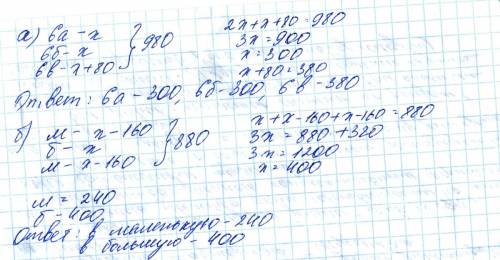 а) 6а - х
6б - х
6в - х + 80 } 980
2х + х + 80 = 980
3х = 900
х = 300
х + 80 = 380
Ответ: 6а - 300, 6б - 300, 6в - 380
б) м - х - 160
б - х
м - х - 160 } 880
х + х - 160 + х - 160 = 880
3х = 880 + 320
3х = 1200
х = 400
м = 240
б - 400
Ответ: в маленькую - 240
в большую - 400